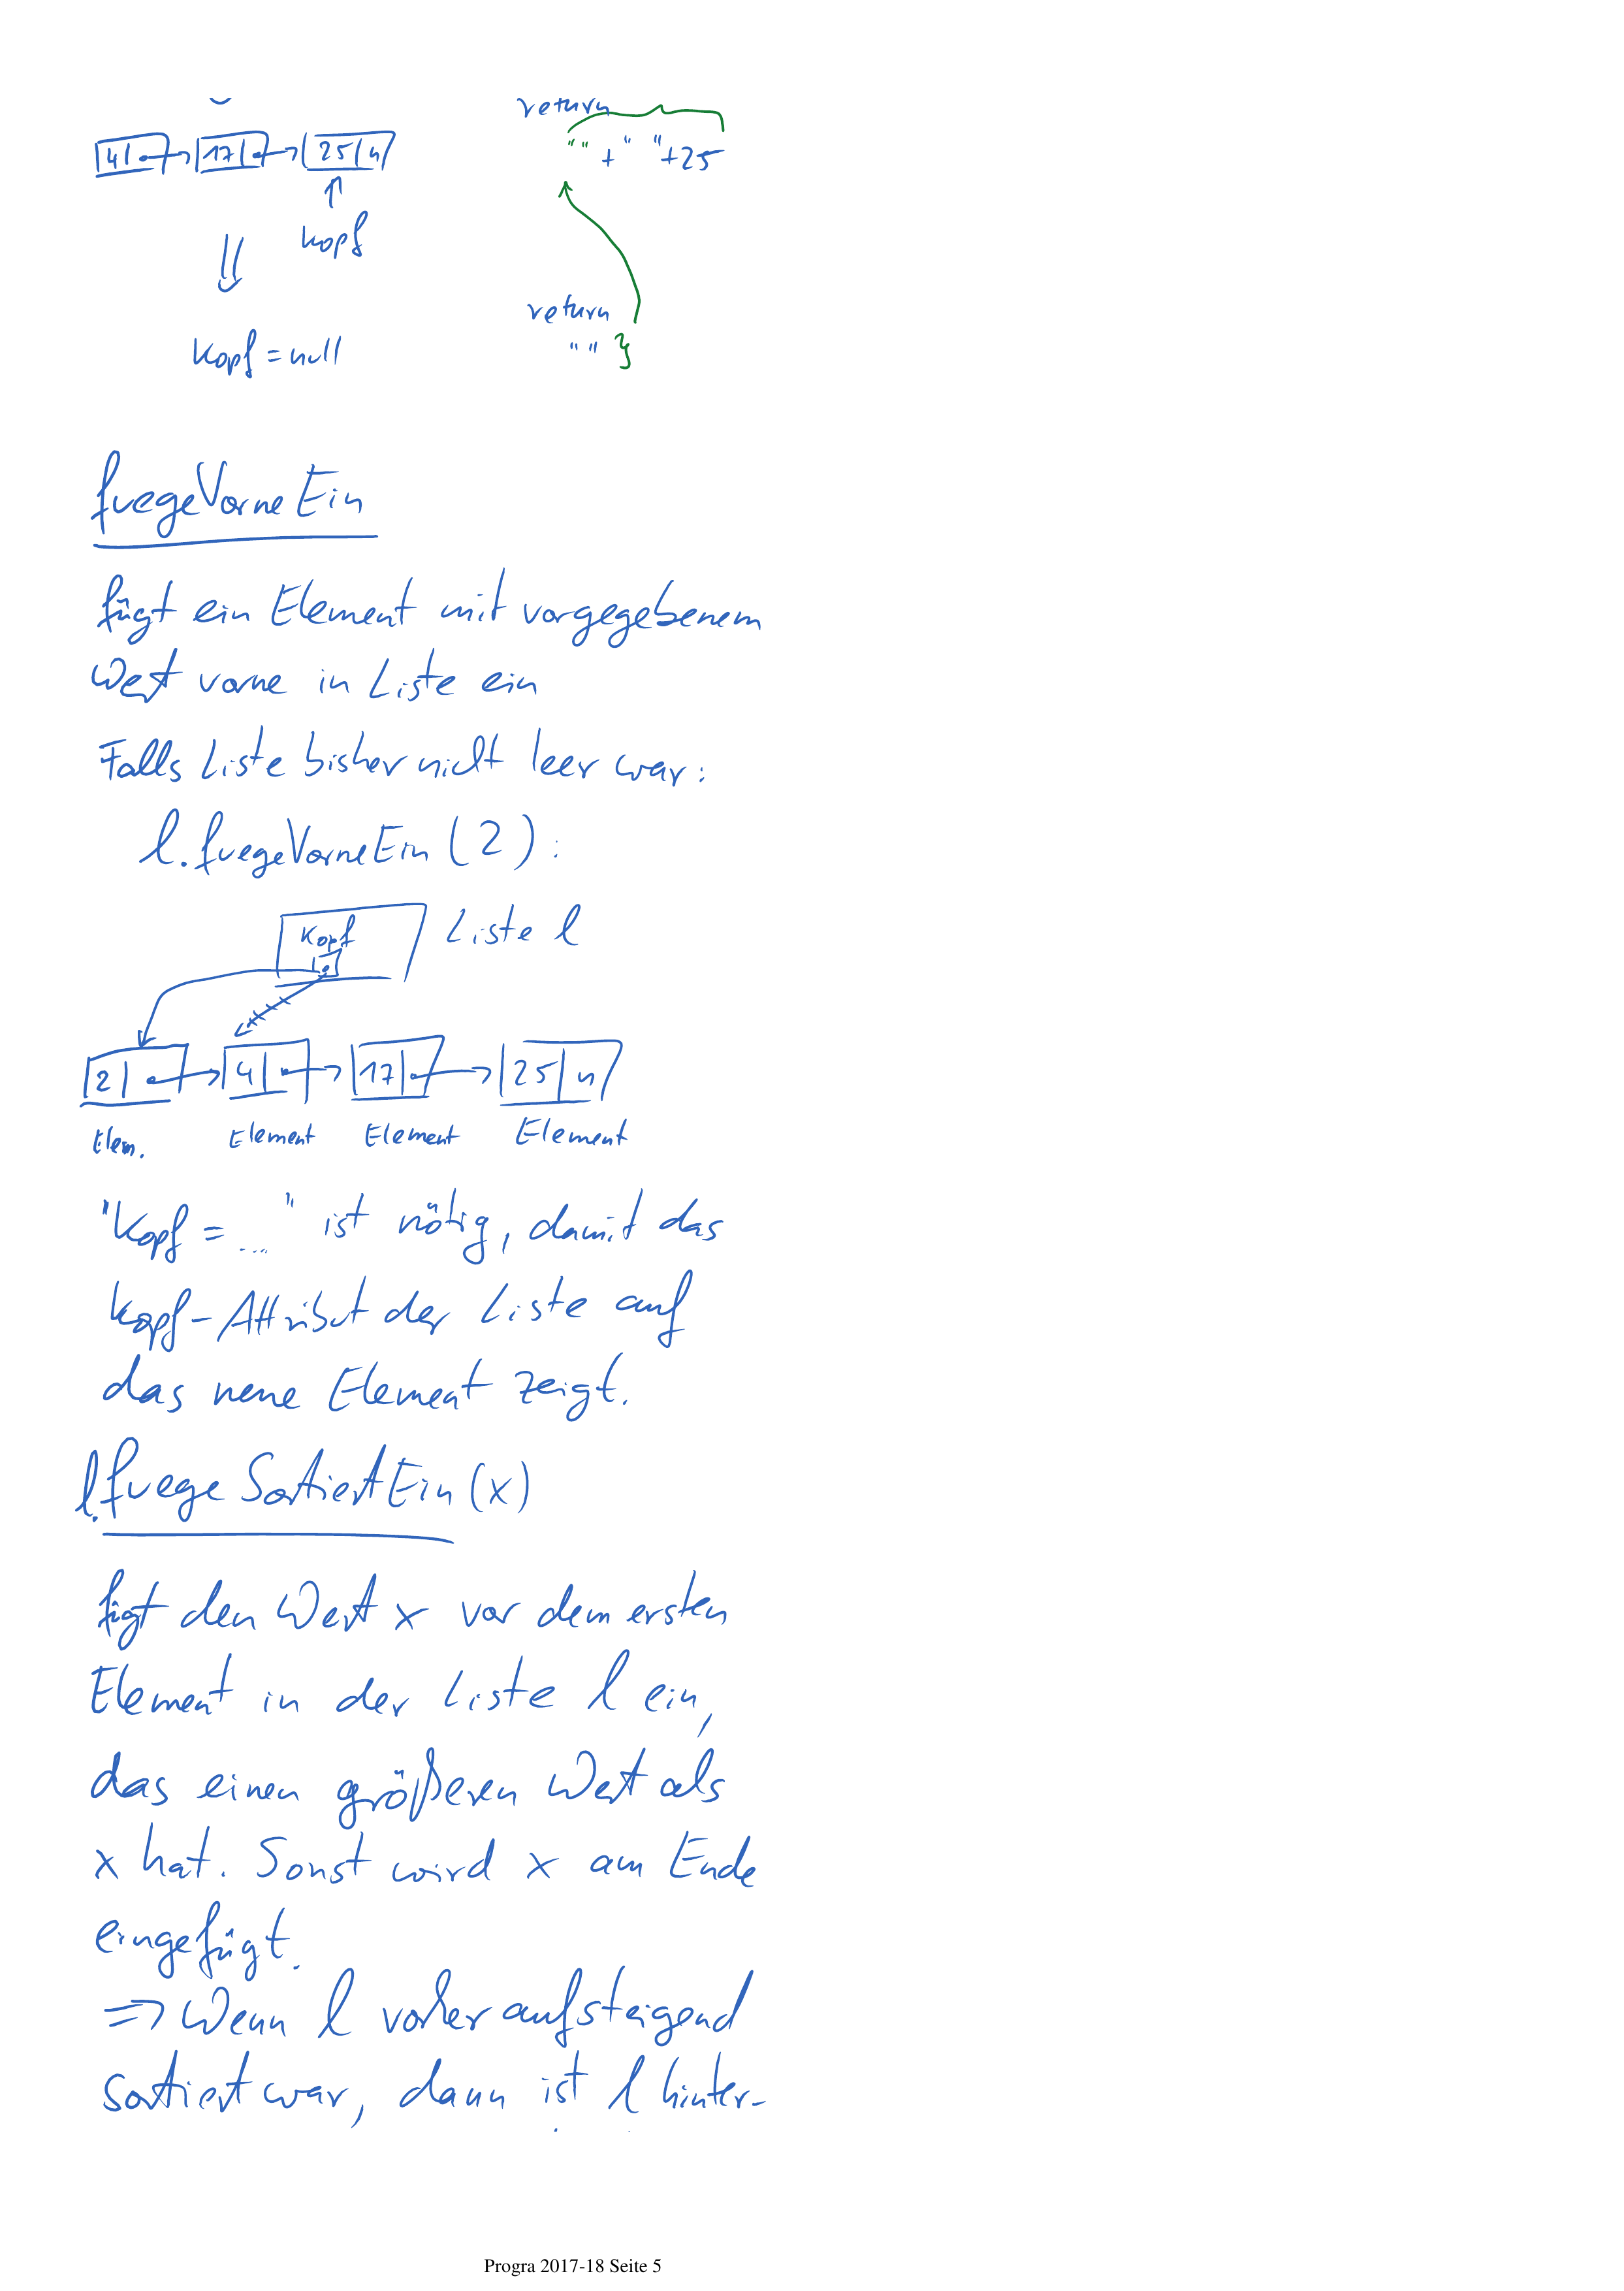 return
4 17 25 n
"" + " " + 25
Kopf
return
Kopf = null
""
fuegeVorneEin
fügt ein Element mit vorgegebenem
Wert vorne in Liste ein
Falls Liste bisher nicht leer war:
l.fuegeVorneEin(2):
Kopf
Liste l
2 4 17 25 n
Elem. Element Element Element
"Kopf = ..." ist nötig, damit das
Kopf-Attribut der Liste auf
das neue Element zeigt.
l.fuegeSortiertEin(x)
fügt den Wert x vor dem ersten
Element in der Liste l ein,
das einen größeren Wert als
x hat. Sonst wird x am Ende
eingefügt.
=> Wenn l vorher aufsteigend
sortiert war, dann ist l hinter-
Progra 2017-18 Seite 5